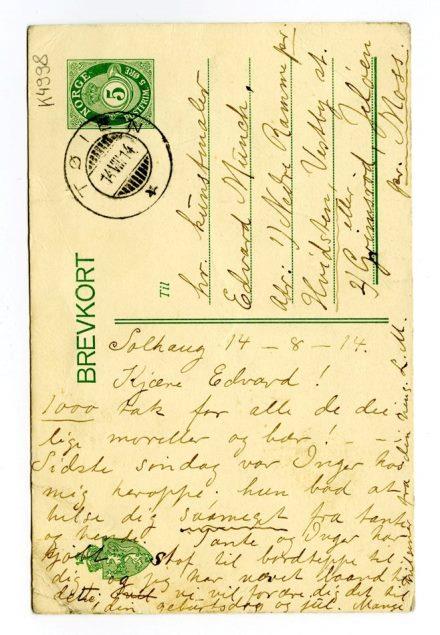 K4998
NORGE
5 ØRE
5
FRIM.
TØIEN
14 VIII 14
BREVKORT
Til
hr. kunstmaler
Edvard Munch,
adr. 1) Nedre Ramme pr.
Hvidsten, Vestby st.
eller
2) Grimsrød, Jeløen
pr. Moss.
Solhaug 14 - 8 - 14.
Kjære Edvard!
1000 tak for alle de dei-
lige moreller og bær! - -
Sidste søndag var Inger hos
mig heroppe. hun bad at
hilse dig saameget fra tante
og hende. Tante og Inger har
kjøbt stof til bordteppe til
dig og jeg har vævet baand til
dette. vi vil forære dig det til
din geburtsdag og jul. Mange
hilsener fra din heng. L. M.